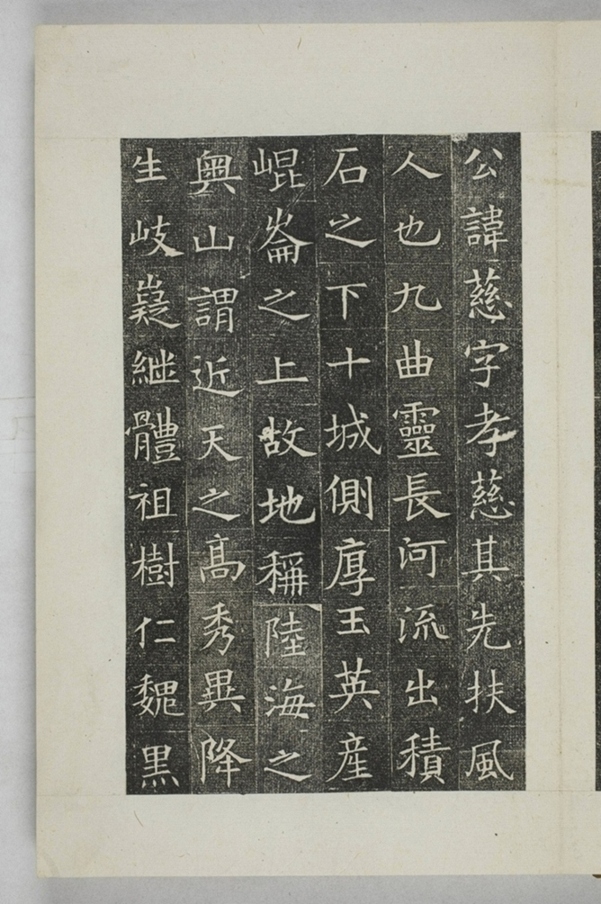 公諱慈字孝慈其先扶風
人也九曲靈長河流出積
石之下十城側厚玉英産
崐崘之上故地稱陸海之
奥山謂近天之髙秀異降
生岐嶷継體祖樹仁魏黒